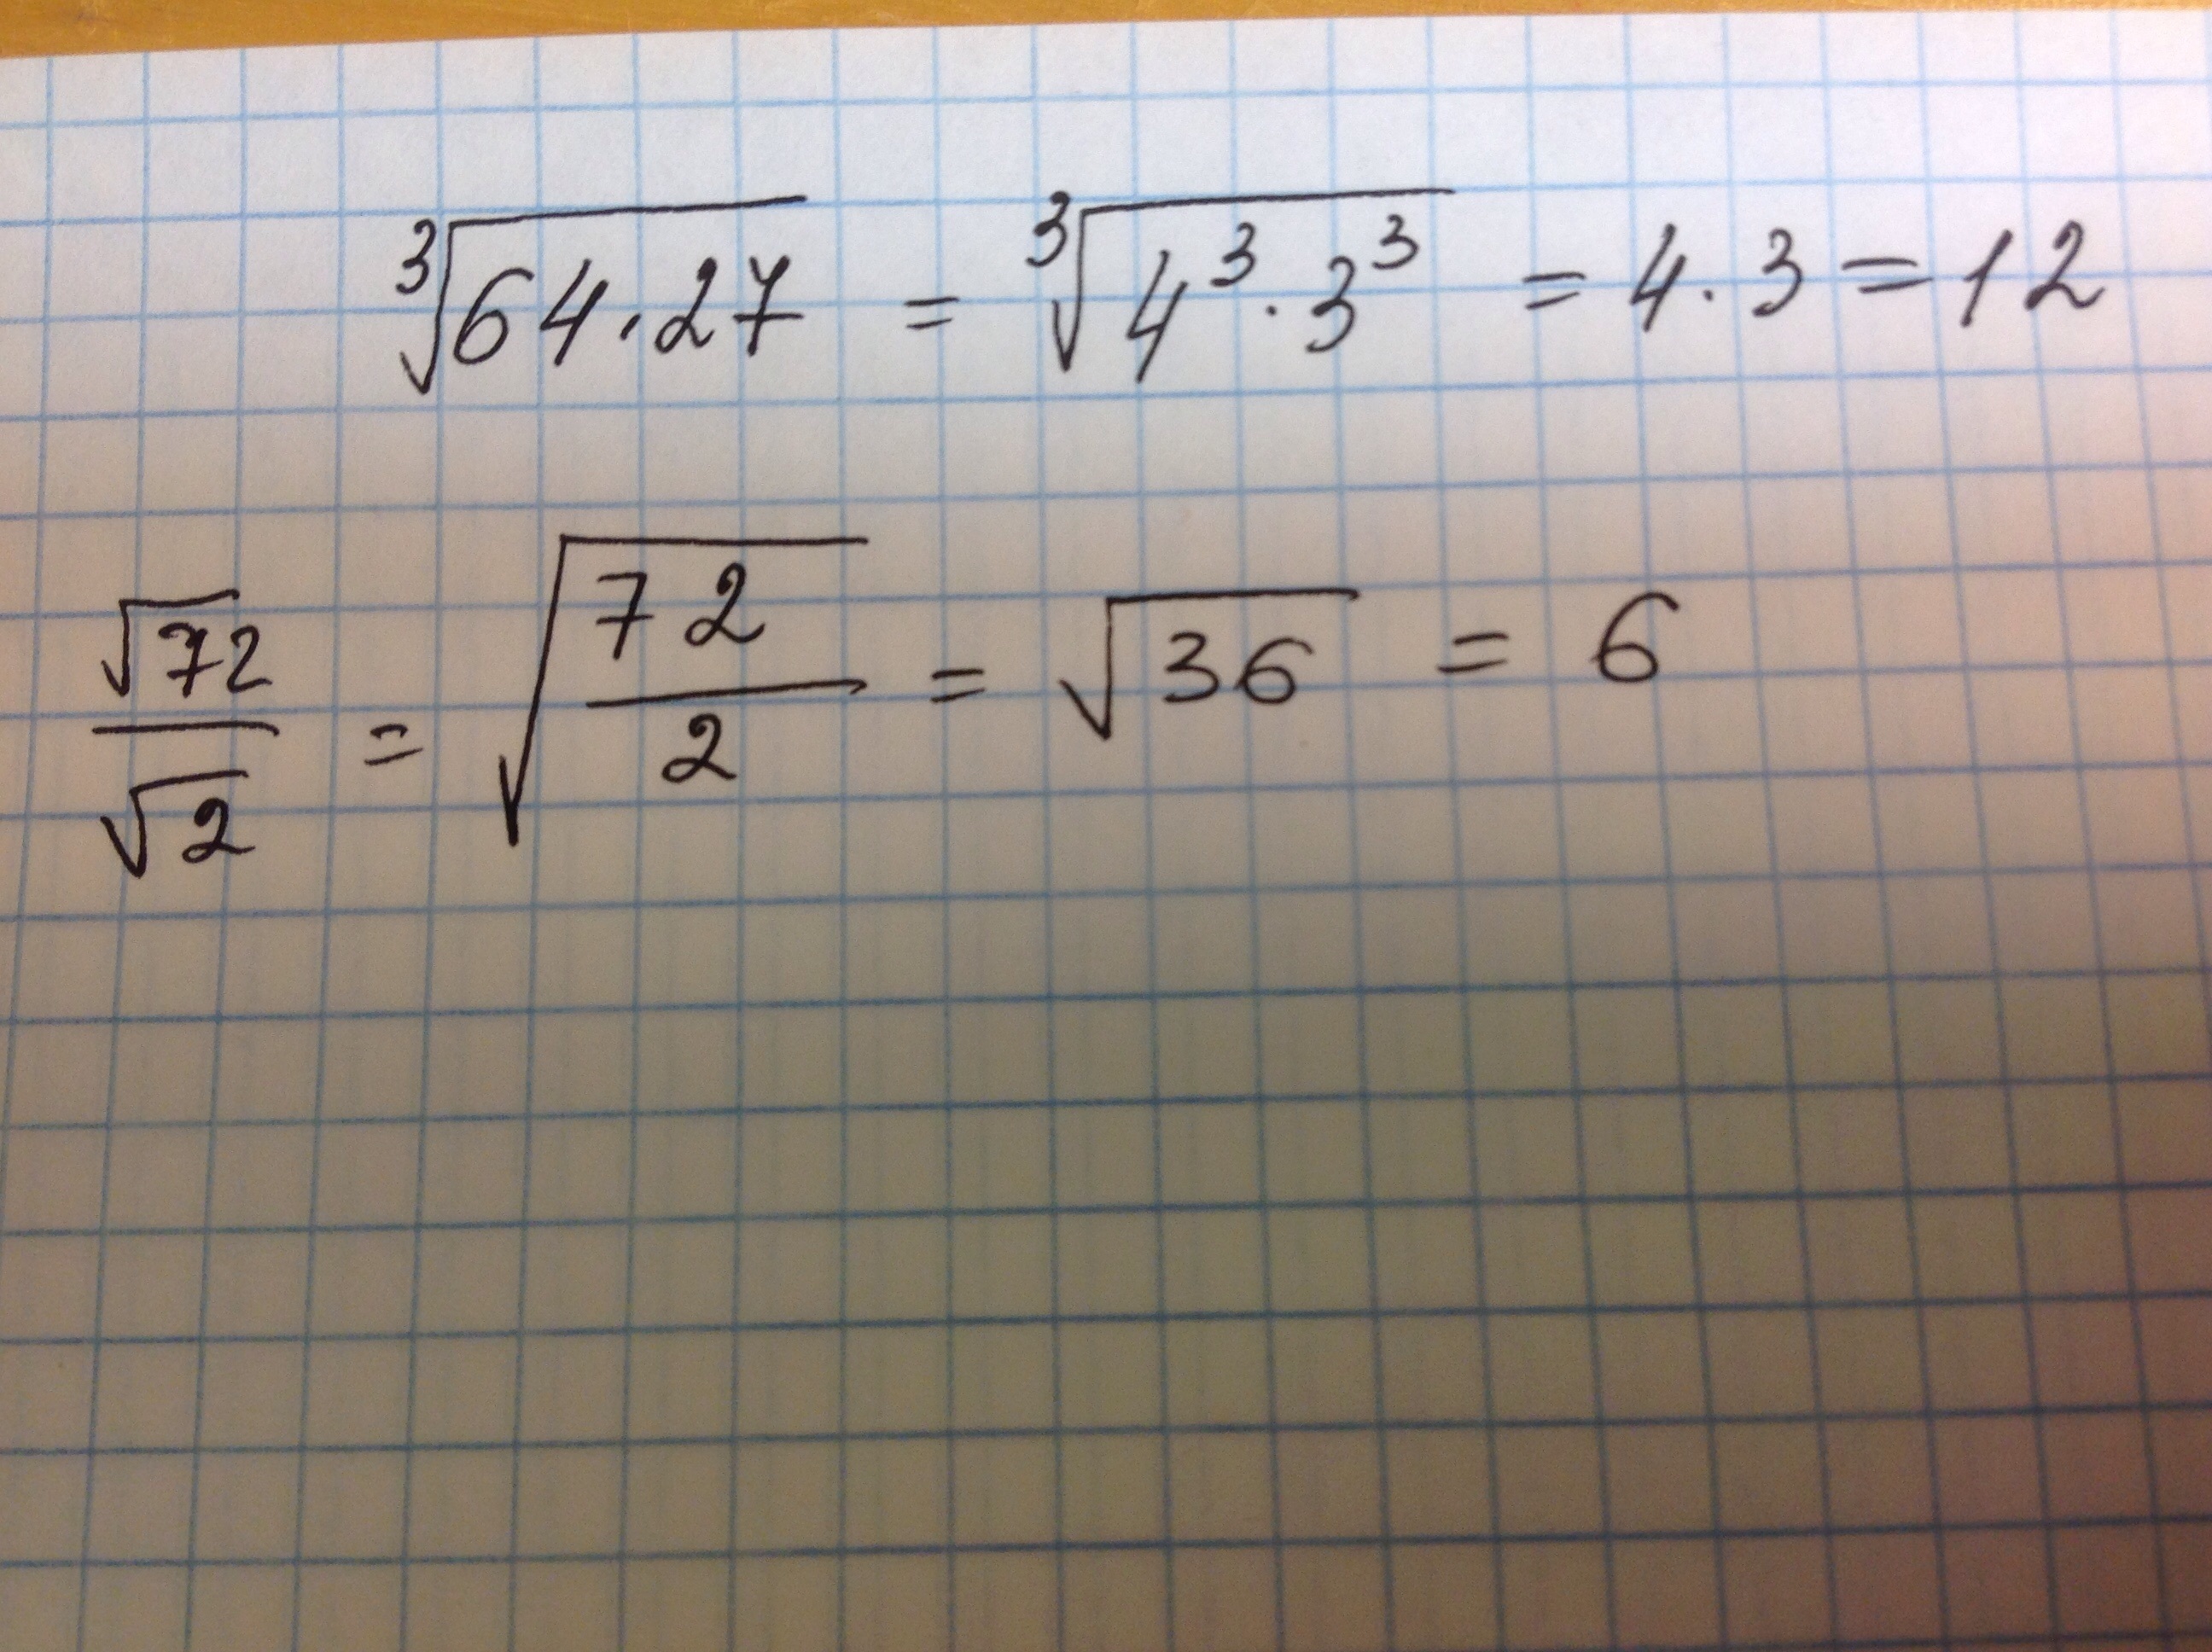 ∛(64·27) = ∛(4³·3³) = 4·3 = 12
√72/√2 = √(72/2) = √36 = 6